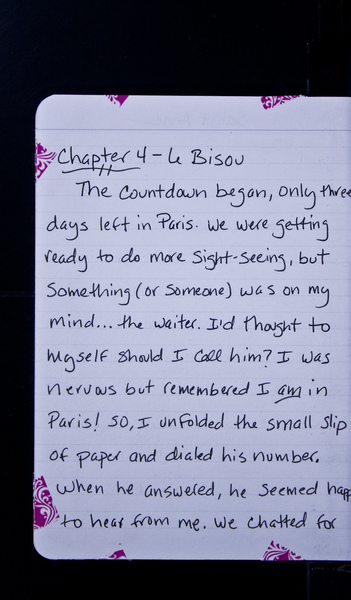 Chapter 4 - Le Bisou
The Countdown began, only three
days left in Paris. We were getting
ready to do more Sight-Seeing, but
Something (or Someone) was on my
mind... the waiter. I'd thought to
myself Should I call him? I was
nervous but remembered I am in
Paris! So, I unfolded the small slip
of paper and dialed his number.
When he answered, he seemed happ
to hear from me. We chatted for